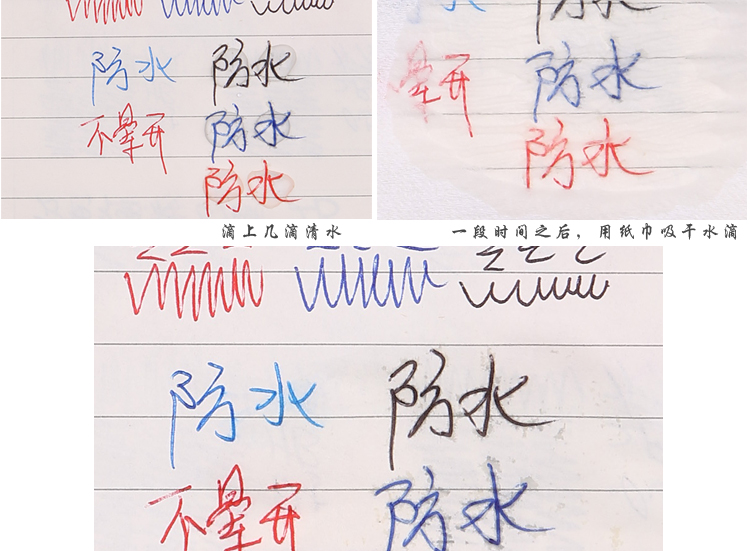 防水 防水
不晕开 防水
防水
水 防水
晕开 防水
防水
滴上几滴清水
一段时间之后，用纸巾吸干水滴
防水 防水
不晕开 防水